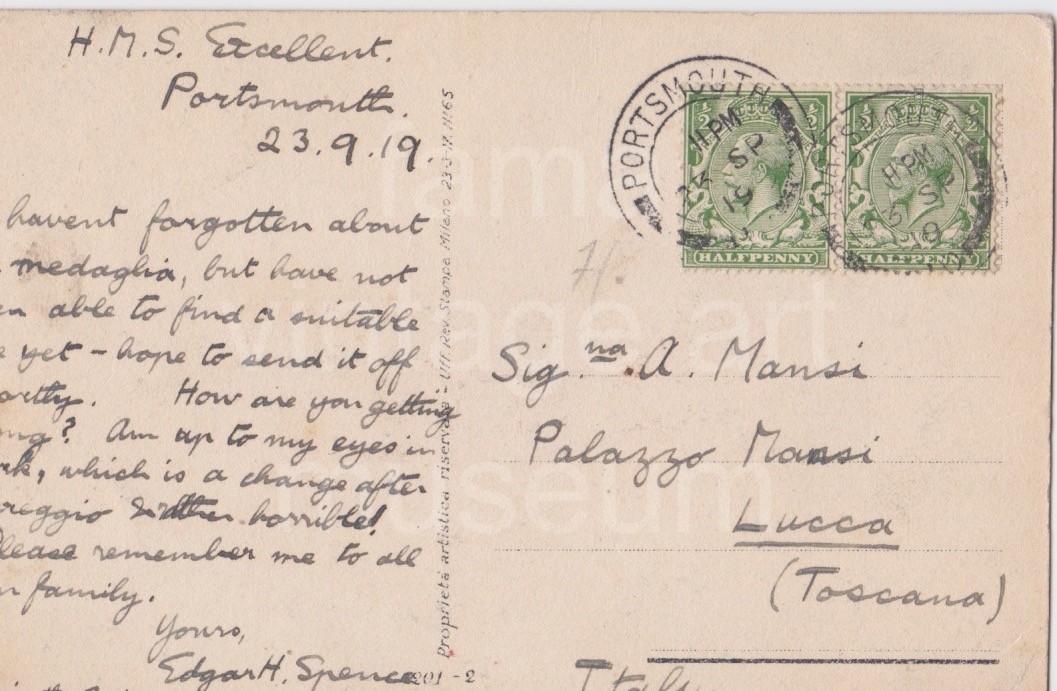 H.M.S. Excellent.
Portsmouth.
23.9.19.
havent forgotten about
medaglia, but have not
able to find a suitable
yet - hope to send it off
How are you getting
? Am up to my eyes in
, which is a change after
horrible!
Please remember me to all
family.
Yours,
Edgar H. Spence
Proprietà artistica riservata - Uff. Rev. Stampa Milano 23-3-17. N. 1165
201 - 2
PORTSMOUTH
11 PM
SP
19
11 PM
SP
19
HALFPENNY
HALFPENNY
71.
Sig.na A. Mansi
Palazzo Mansi
Lucca
(Toscana)
Italy
vintage art
museum